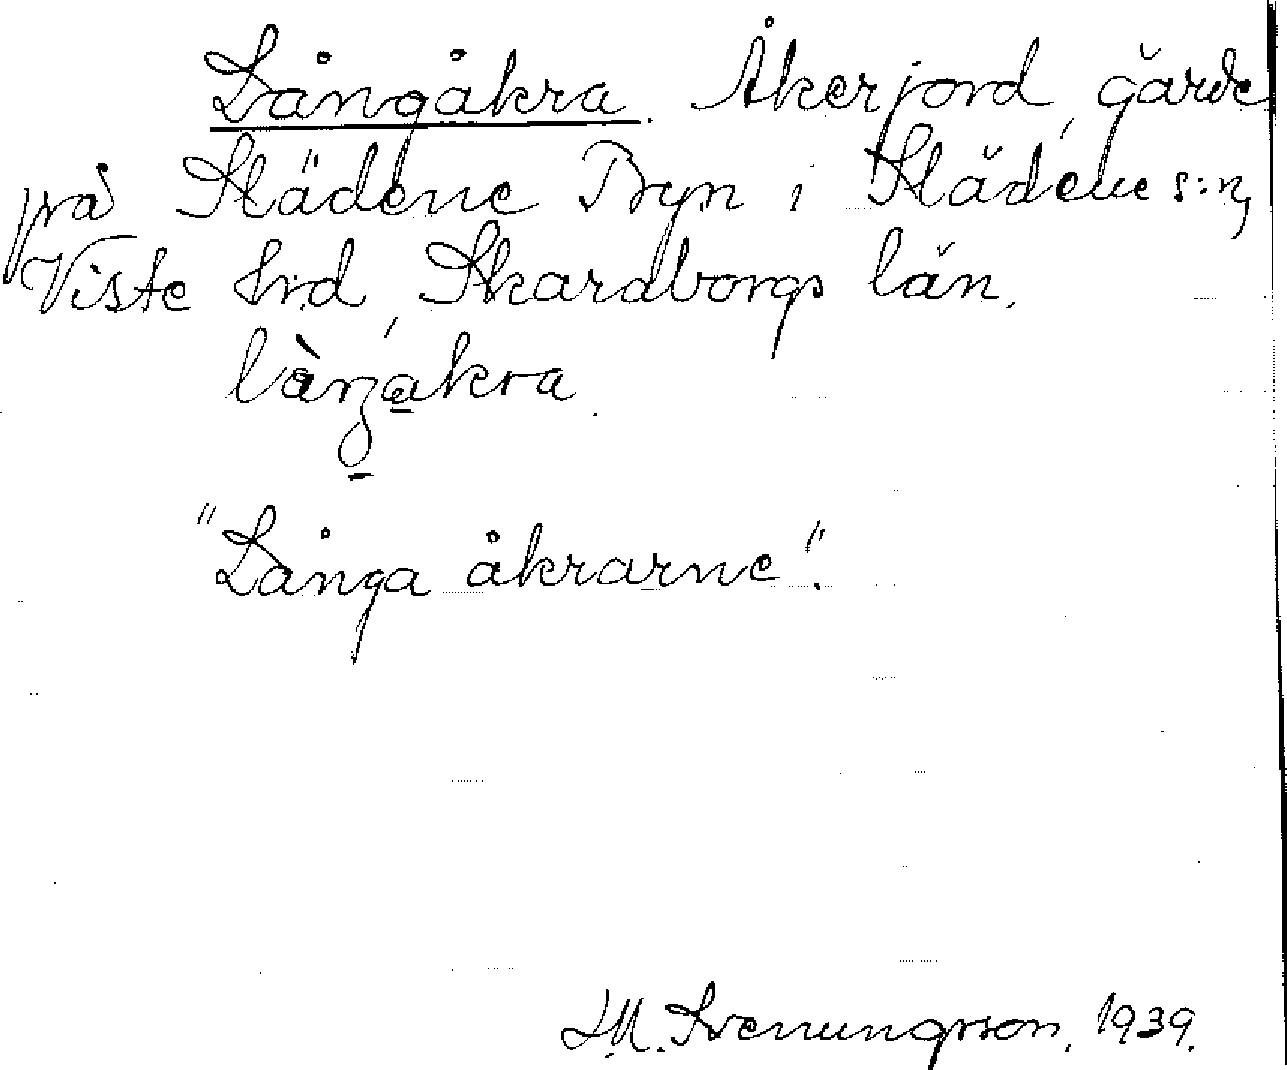 Långåkra. Åkerjord, gärde
på Slädene Byn i Slädene s:n,
Viste hrd, Skaraborgs län.
làŋåkra
"Långa åkrarne".
S.M. Svenungsson, 1939.